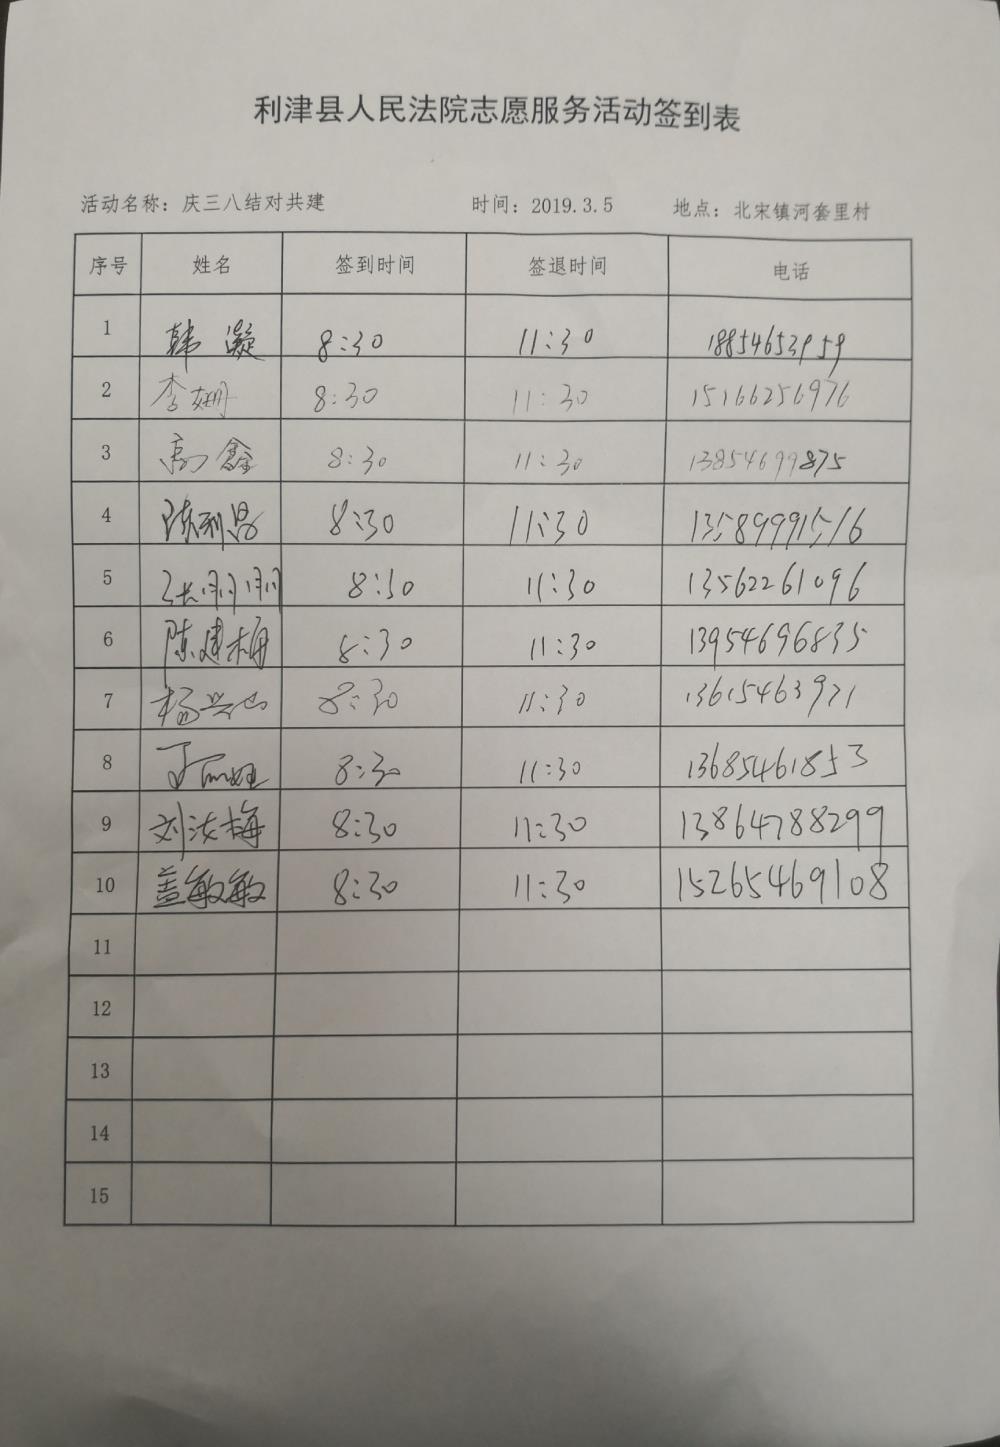 利津县人民法院志愿服务活动签到表
活动名称：庆三八结对共建 时间：2019.3.5 地点：北宋镇河套里村
序号 姓名 签到时间 签退时间 电话
1 韩凝 8:30 11:30 18854653959
2 李姗 8:30 11:30 15166256976
3 高鑫 8:30 11:30 13854699875
4 陈利昌 8:30 11:30 13589991516
5 张明明 8:30 11:30 13562261096
6 陈建梅 8:30 11:30 13954696835
7 杨 8:30 11:30 13615463971
8 丁 8:30 11:30 13685461853
9 刘汝梅 8:30 11:30 13864788299
10 盖敏敏 8:30 11:30 15265469108
11
12
13
14
15